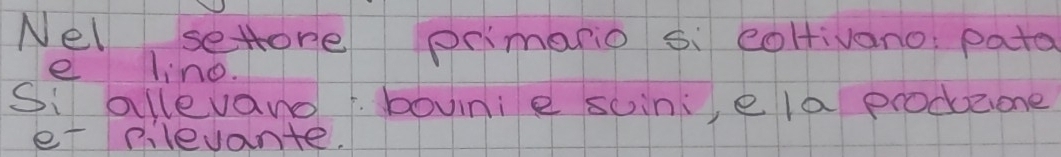 Nel settore primario si coltivano: pata
e lino.
Si allevano: bovini e suini, e la produzione
e- rilevante.